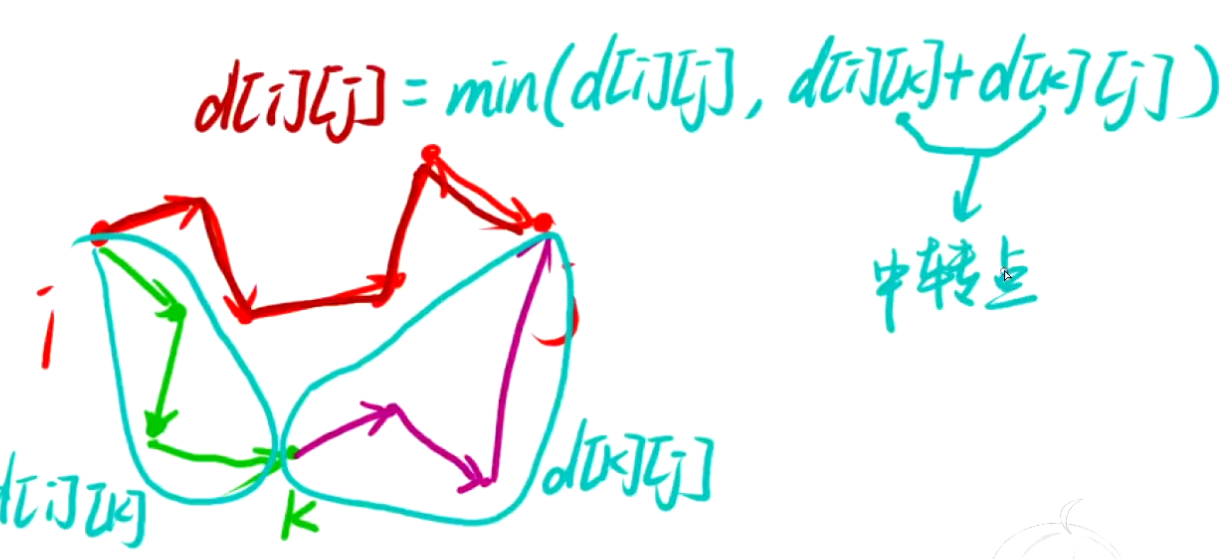 d[i][j] = min(d[i][j], d[i][k]+d[k][j])
中转点
i
j
d[i][k]
k
d[k][j]